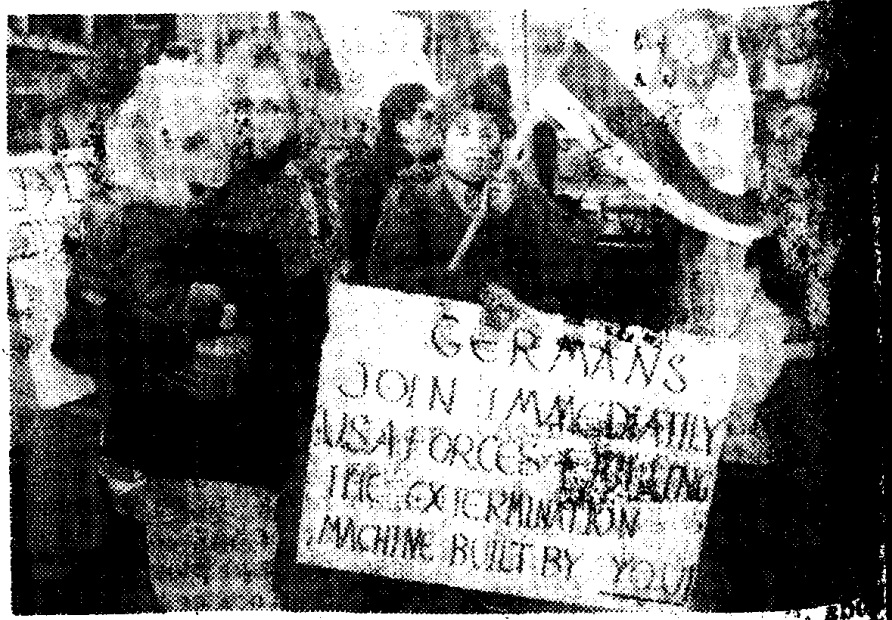 GERMANS
JOIN IMMEDIATILY
USA FORCES
THE EXTERMINATION
MACHINE BUILT BY YOU